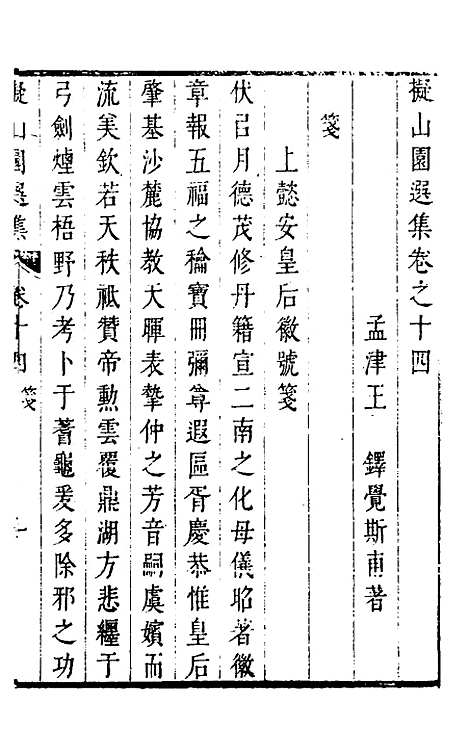 擬山園選集卷之十四
孟津王 鐸覺斯甫著
箋
上懿安皇后徽號箋
伏㠯月德茂修丹籍宣二南之化母儀昭著徽
章報五福之稐寶冊彌尊遐區胥慶恭惟皇后
肇基沙麓協教天暉表摯仲之芳音嗣虞嬪而
流美欽若天秩祗贊帝勲雲覆鼎湖方悲纒于
弓劍煙雲梧野乃考卜于蓍龜爰多除邪之功
擬山園選集 卷十四 箋 一